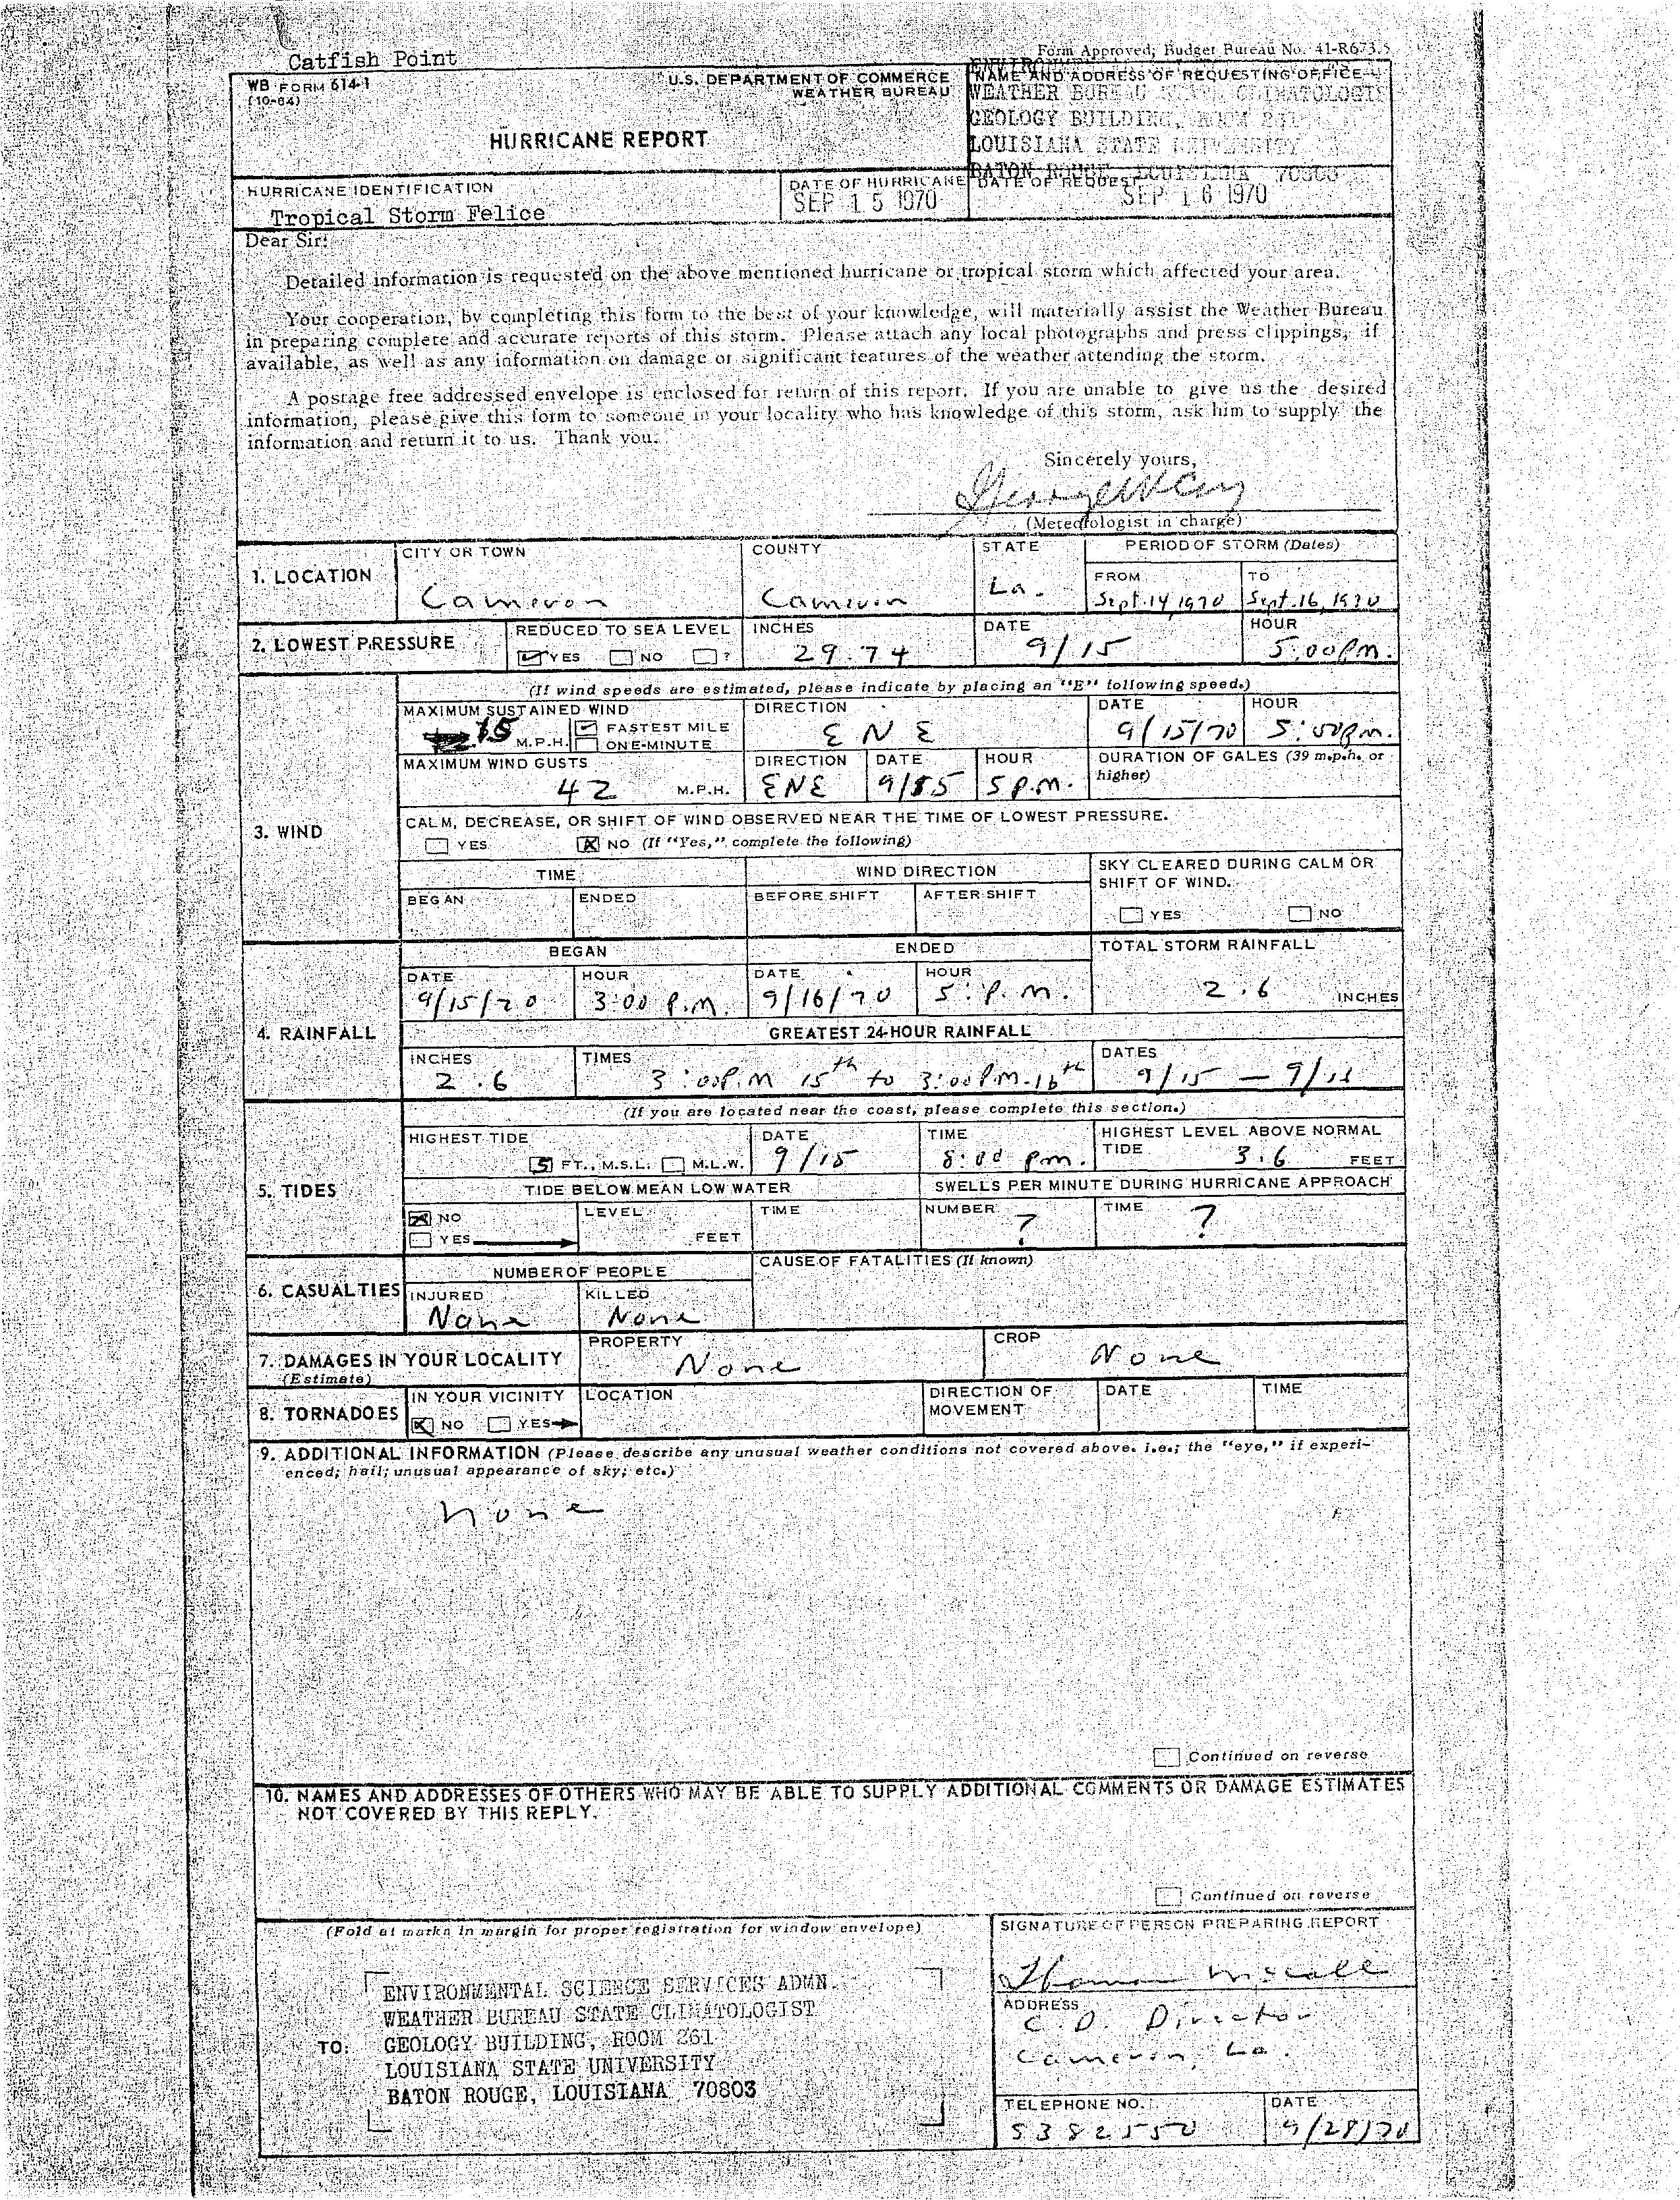 Catfish Point
Form Approved; Budget Bureau No. 41-R673.5
WB FORM 614-1
(10-64)
U.S. DEPARTMENT OF COMMERCE
WEATHER BUREAU
HURRICANE REPORT
NAME AND ADDRESS OF REQUESTING OFFICE
WEATHER BUREAU STATE CLIMATOLOGIST
GEOLOGY BUILDING, ROOM 261
LOUISIANA STATE UNIVERSITY
BATON ROUGE, LOUISIANA 70803
HURRICANE IDENTIFICATION
Tropical Storm Felice
DATE OF HURRICANE
SEP 15 1970
DATE OF REQUEST
SEP 16 1970
Dear Sir:
Detailed information is requested on the above mentioned hurricane or tropical storm which affected your area.
Your cooperation, by completing this form to the best of your knowledge, will materially assist the Weather Bureau
in preparing complete and accurate reports of this storm. Please attach any local photographs and press clippings, if
available, as well as any information on damage or significant features of the weather attending the storm.
A postage free addressed envelope is enclosed for return of this report. If you are unable to give us the desired
information, please give this form to someone in your locality who has knowledge of this storm, ask him to supply the
information and return it to us. Thank you.
Sincerely yours,
(Meteorologist in charge)
1. LOCATION
CITY OR TOWN
Cameron
COUNTY
Cameron
STATE
La.
PERIOD OF STORM (Dates)
FROM
Sept. 14, 1970
TO
Sept. 16, 1970
2. LOWEST PRESSURE
REDUCED TO SEA LEVEL
YES NO ?
INCHES
29.74
DATE
9/15
HOUR
5:00 P.m.
3. WIND
(If wind speeds are estimated, please indicate by placing an "E" following speed.)
MAXIMUM SUSTAINED WIND
M.P.H. FASTEST MILE
ONE-MINUTE
DIRECTION
ENE
DATE
9/15/70
HOUR
5:00 p.m.
MAXIMUM WIND GUSTS
42 M.P.H.
DIRECTION
ENE
DATE
9/15
HOUR
5 P.M.
DURATION OF GALES (39 m.p.h. or
higher)
CALM, DECREASE, OR SHIFT OF WIND OBSERVED NEAR THE TIME OF LOWEST PRESSURE.
YES X NO (If "Yes," complete the following)
TIME
BEGAN
ENDED
WIND DIRECTION
BEFORE SHIFT
AFTER SHIFT
SKY CLEARED DURING CALM OR
SHIFT OF WIND.
YES NO
4. RAINFALL
BEGAN
DATE
9/15/70
HOUR
3:00 P.M.
ENDED
DATE
9/16/70
HOUR
5: P.m.
TOTAL STORM RAINFALL
2.6 INCHES
GREATEST 24-HOUR RAINFALL
INCHES
2.6
TIMES
3:00 P.M 15th to 3:00 P.M. 16th
DATES
9/15 —
5. TIDES
(If you are located near the coast, please complete this section.)
HIGHEST TIDE
5 FT., M.S.L. M.L.W.
DATE
9/15
TIME
8:00 pm.
HIGHEST LEVEL ABOVE NORMAL
TIDE
3.6 FEET
TIDE BELOW MEAN LOW WATER
X NO
YES
LEVEL
FEET
TIME
SWELLS PER MINUTE DURING HURRICANE APPROACH
NUMBER
?
TIME
?
6. CASUALTIES
NUMBER OF PEOPLE
INJURED
None
KILLED
None
CAUSE OF FATALITIES (If known)
7. DAMAGES IN YOUR LOCALITY
(Estimate)
PROPERTY
None
CROP
None
8. TORNADOES
IN YOUR VICINITY
X NO YES
LOCATION
DIRECTION OF
MOVEMENT
DATE
TIME
9. ADDITIONAL INFORMATION (Please describe any unusual weather conditions not covered above. i.e.; the "eye," if experi-
enced; hail; unusual appearance of sky; etc.)
none
Continued on reverse
10. NAMES AND ADDRESSES OF OTHERS WHO MAY BE ABLE TO SUPPLY ADDITIONAL COMMENTS OR DAMAGE ESTIMATES
NOT COVERED BY THIS REPLY.
Continued on reverse
(Fold at marks in margin for proper registration for window envelope)
TO:
ENVIRONMENTAL SCIENCE SERVICES ADMN.
WEATHER BUREAU STATE CLIMATOLOGIST
GEOLOGY BUILDING, ROOM 261
LOUISIANA STATE UNIVERSITY
BATON ROUGE, LOUISIANA 70803
SIGNATURE OF PERSON PREPARING REPORT
ADDRESS
C.D. Director
Cameron, La.
TELEPHONE NO.
5382550
DATE
9/28/70